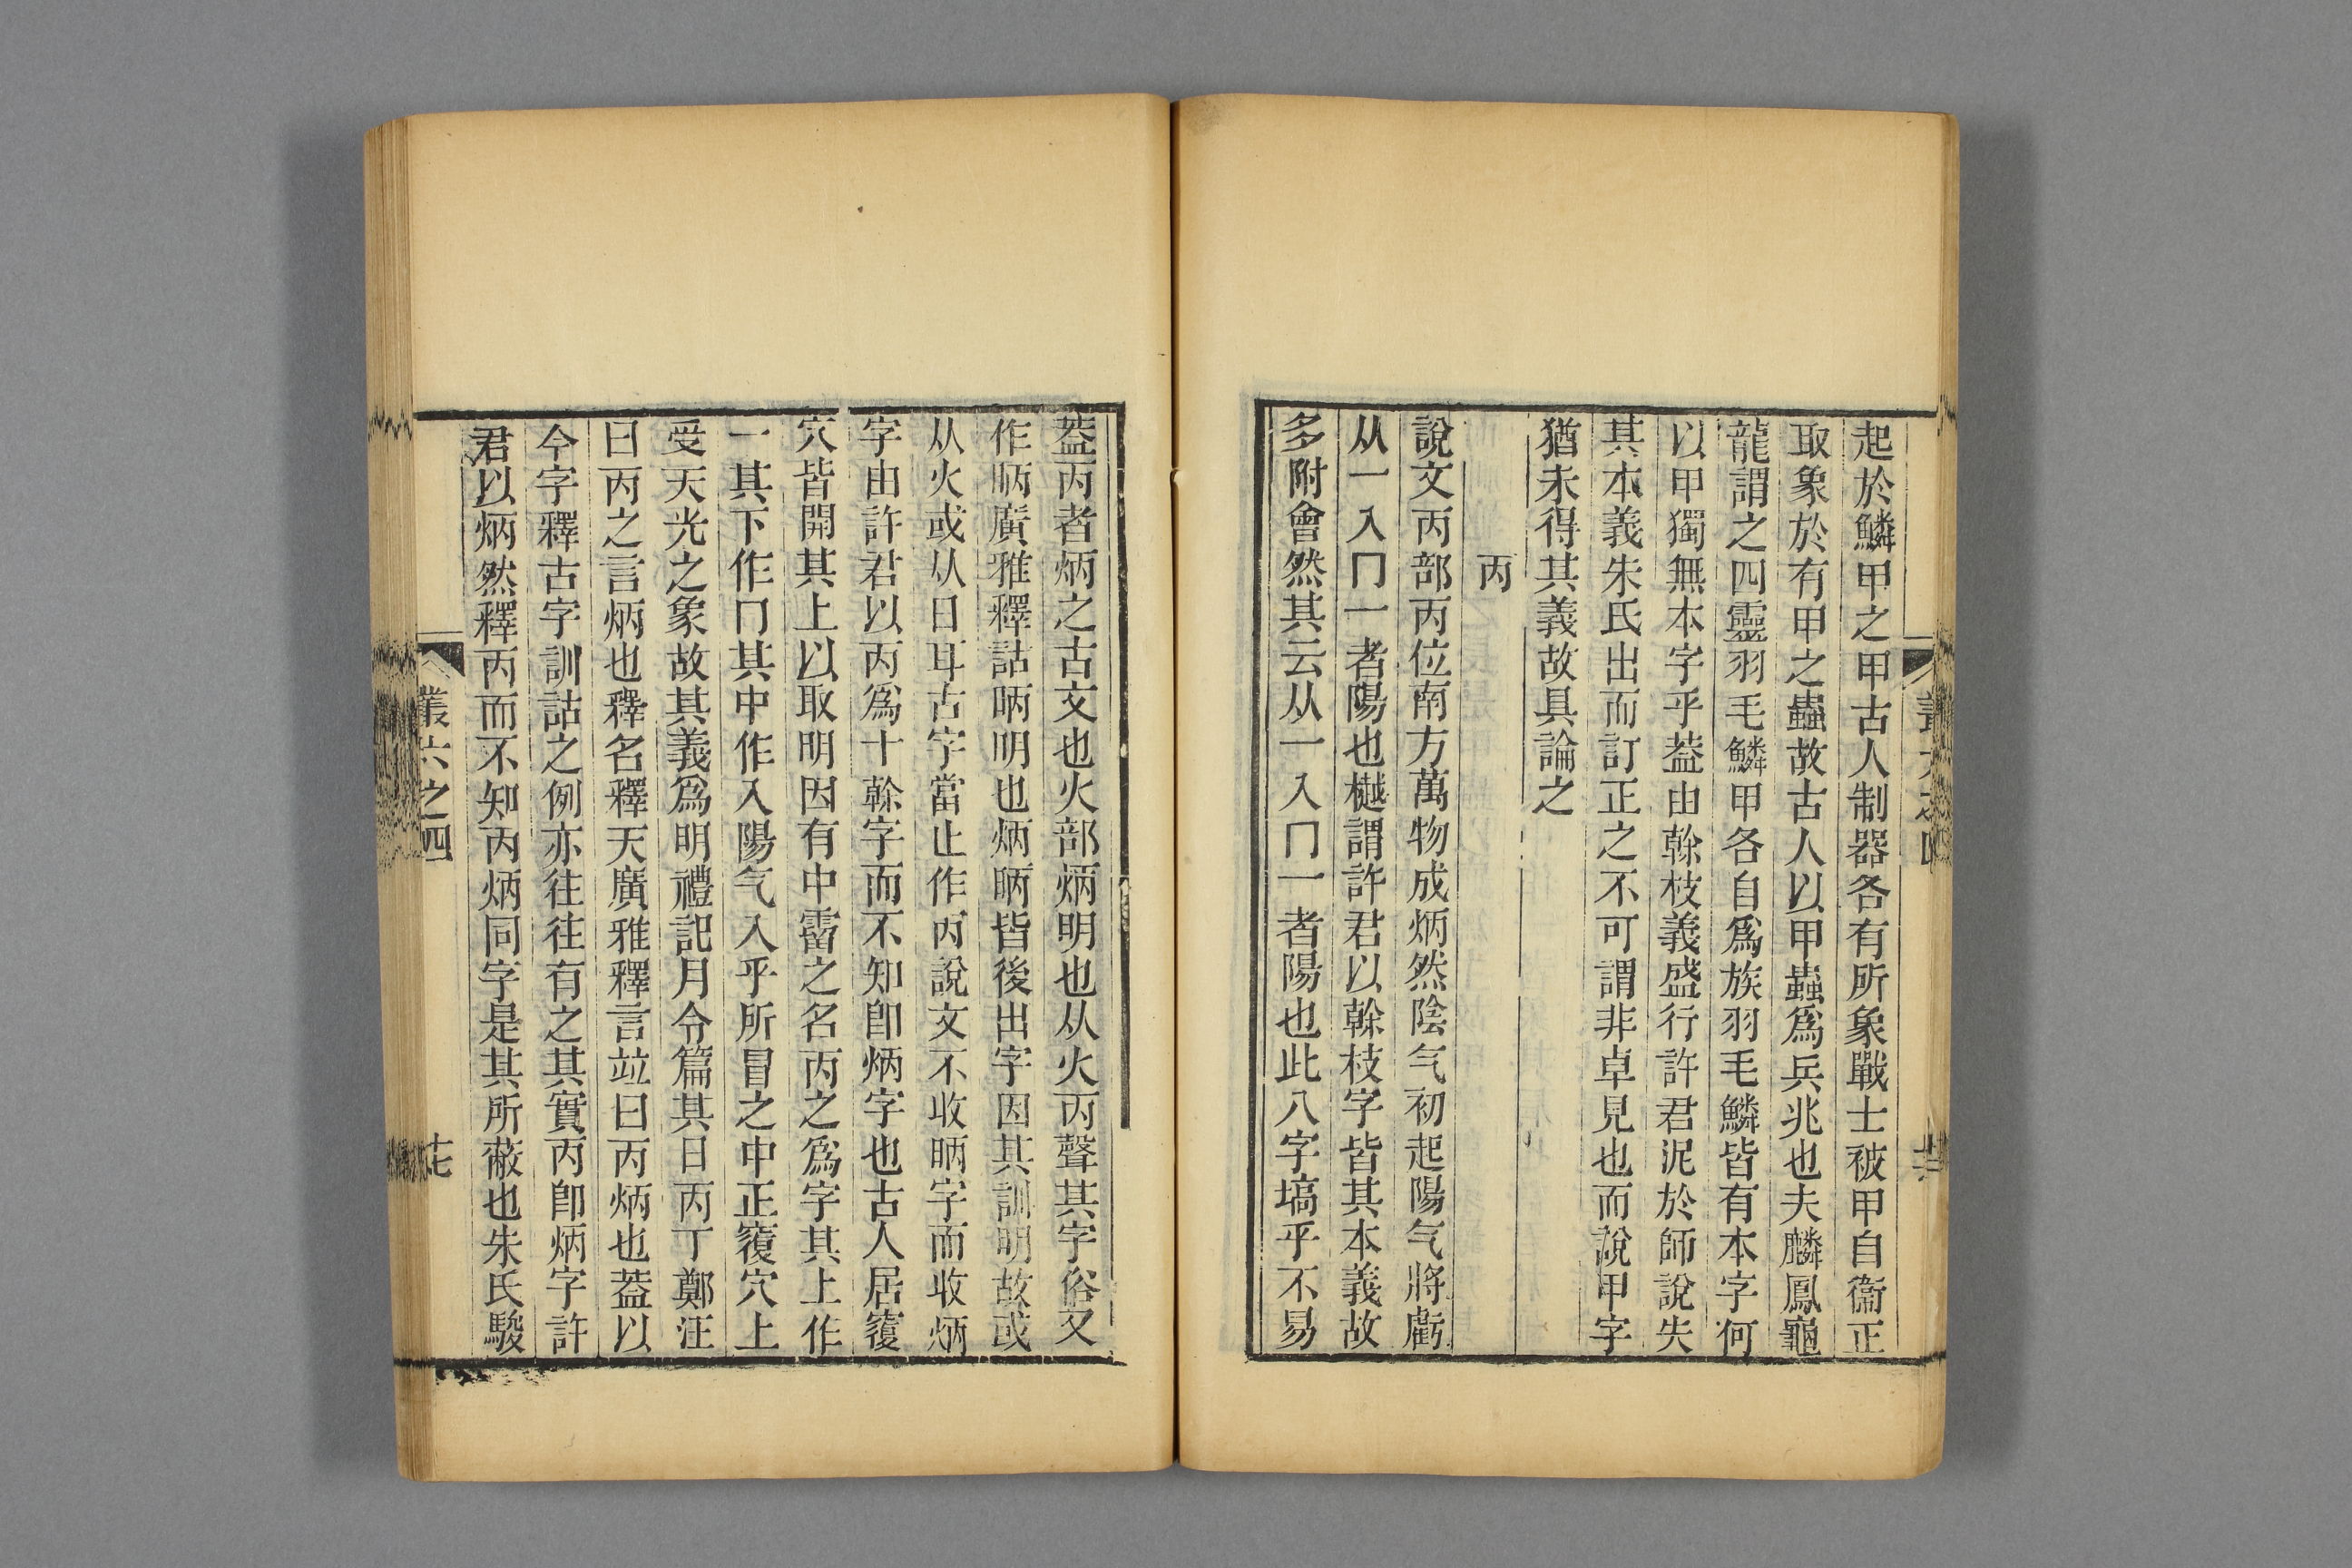 起於鱗甲之甲古人制器各有所象戰士被甲自衞正
取象於有甲之蟲故古人以甲蟲爲兵兆也夫麟鳳龜
龍謂之四靈羽毛鱗甲各自爲族羽毛鱗皆有本字何
以甲獨無本字乎葢由榦枝義盛行許君泥於師說失
其本義朱氏出而訂正之不可謂非卓見也而說甲字
猶未得其義故具論之
丙
說文丙部丙位南方萬物成炳然陰气初起陽气將虧
从一入冂一者陽也樾謂許君以榦枝字皆其本義故
多附會然其云从一入冂一者陽也此八字塙乎不易
葢丙者炳之古文也火部炳明也从火丙聲其字俗又
作昞廣雅釋詁昞明也炳昞皆後出字因其訓明故或
从火或从日耳古字當止作丙說文不收昞字而收炳
字由許君以丙爲十榦字而不知卽炳字也古人居覆
穴皆開其上以取明因有中霤之名丙之爲字其上作
一其下作冂其中作入陽气入乎所冒之中正覆穴上
受天光之象故其義爲明禮記月令篇其日丙丁鄭注
曰丙之言炳也釋名釋天廣雅釋言竝曰丙炳也葢以
今字釋古字訓詁之例亦往往有之其實丙卽炳字許
君以炳然釋丙而不知丙炳同字是其所蔽也朱氏駿
叢六之四
十七